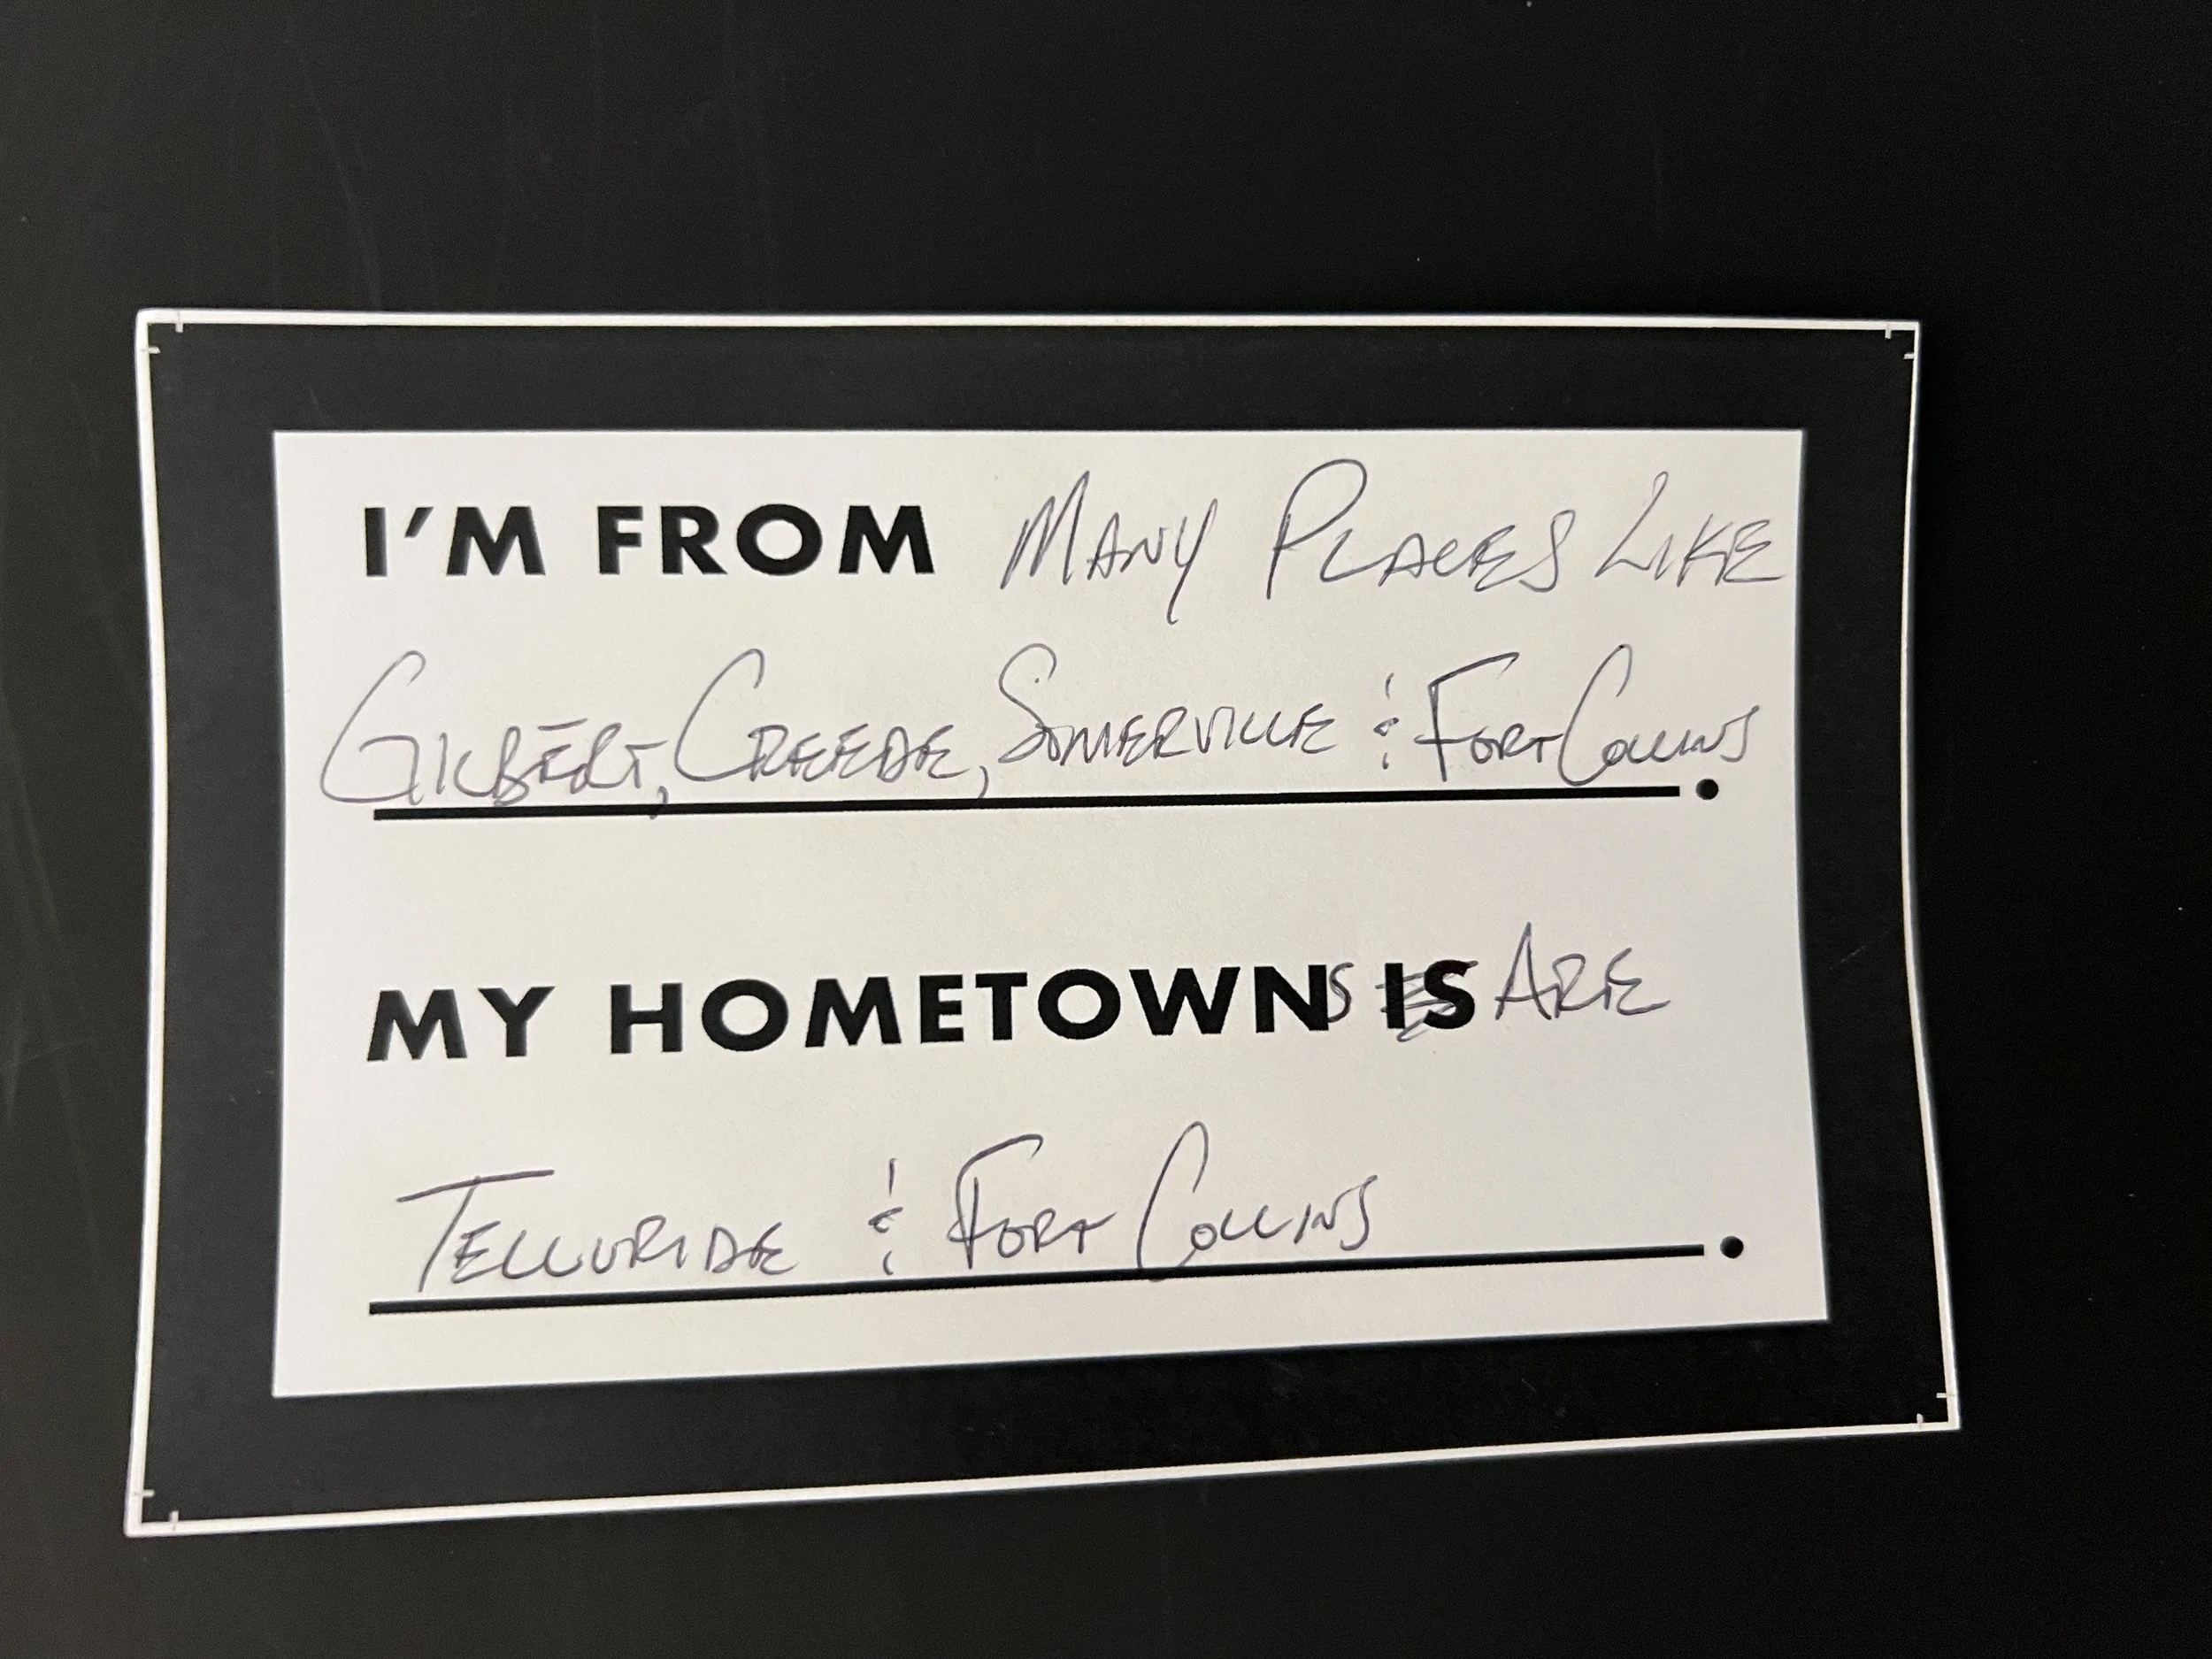 I'M FROM MANY PLACES LIKE
GILBERT, CREEDE, SOMERVILLE & FORT COLLINS.
MY HOMETOWNS IS ARE
TELLURIDE & FORT COLLINS.